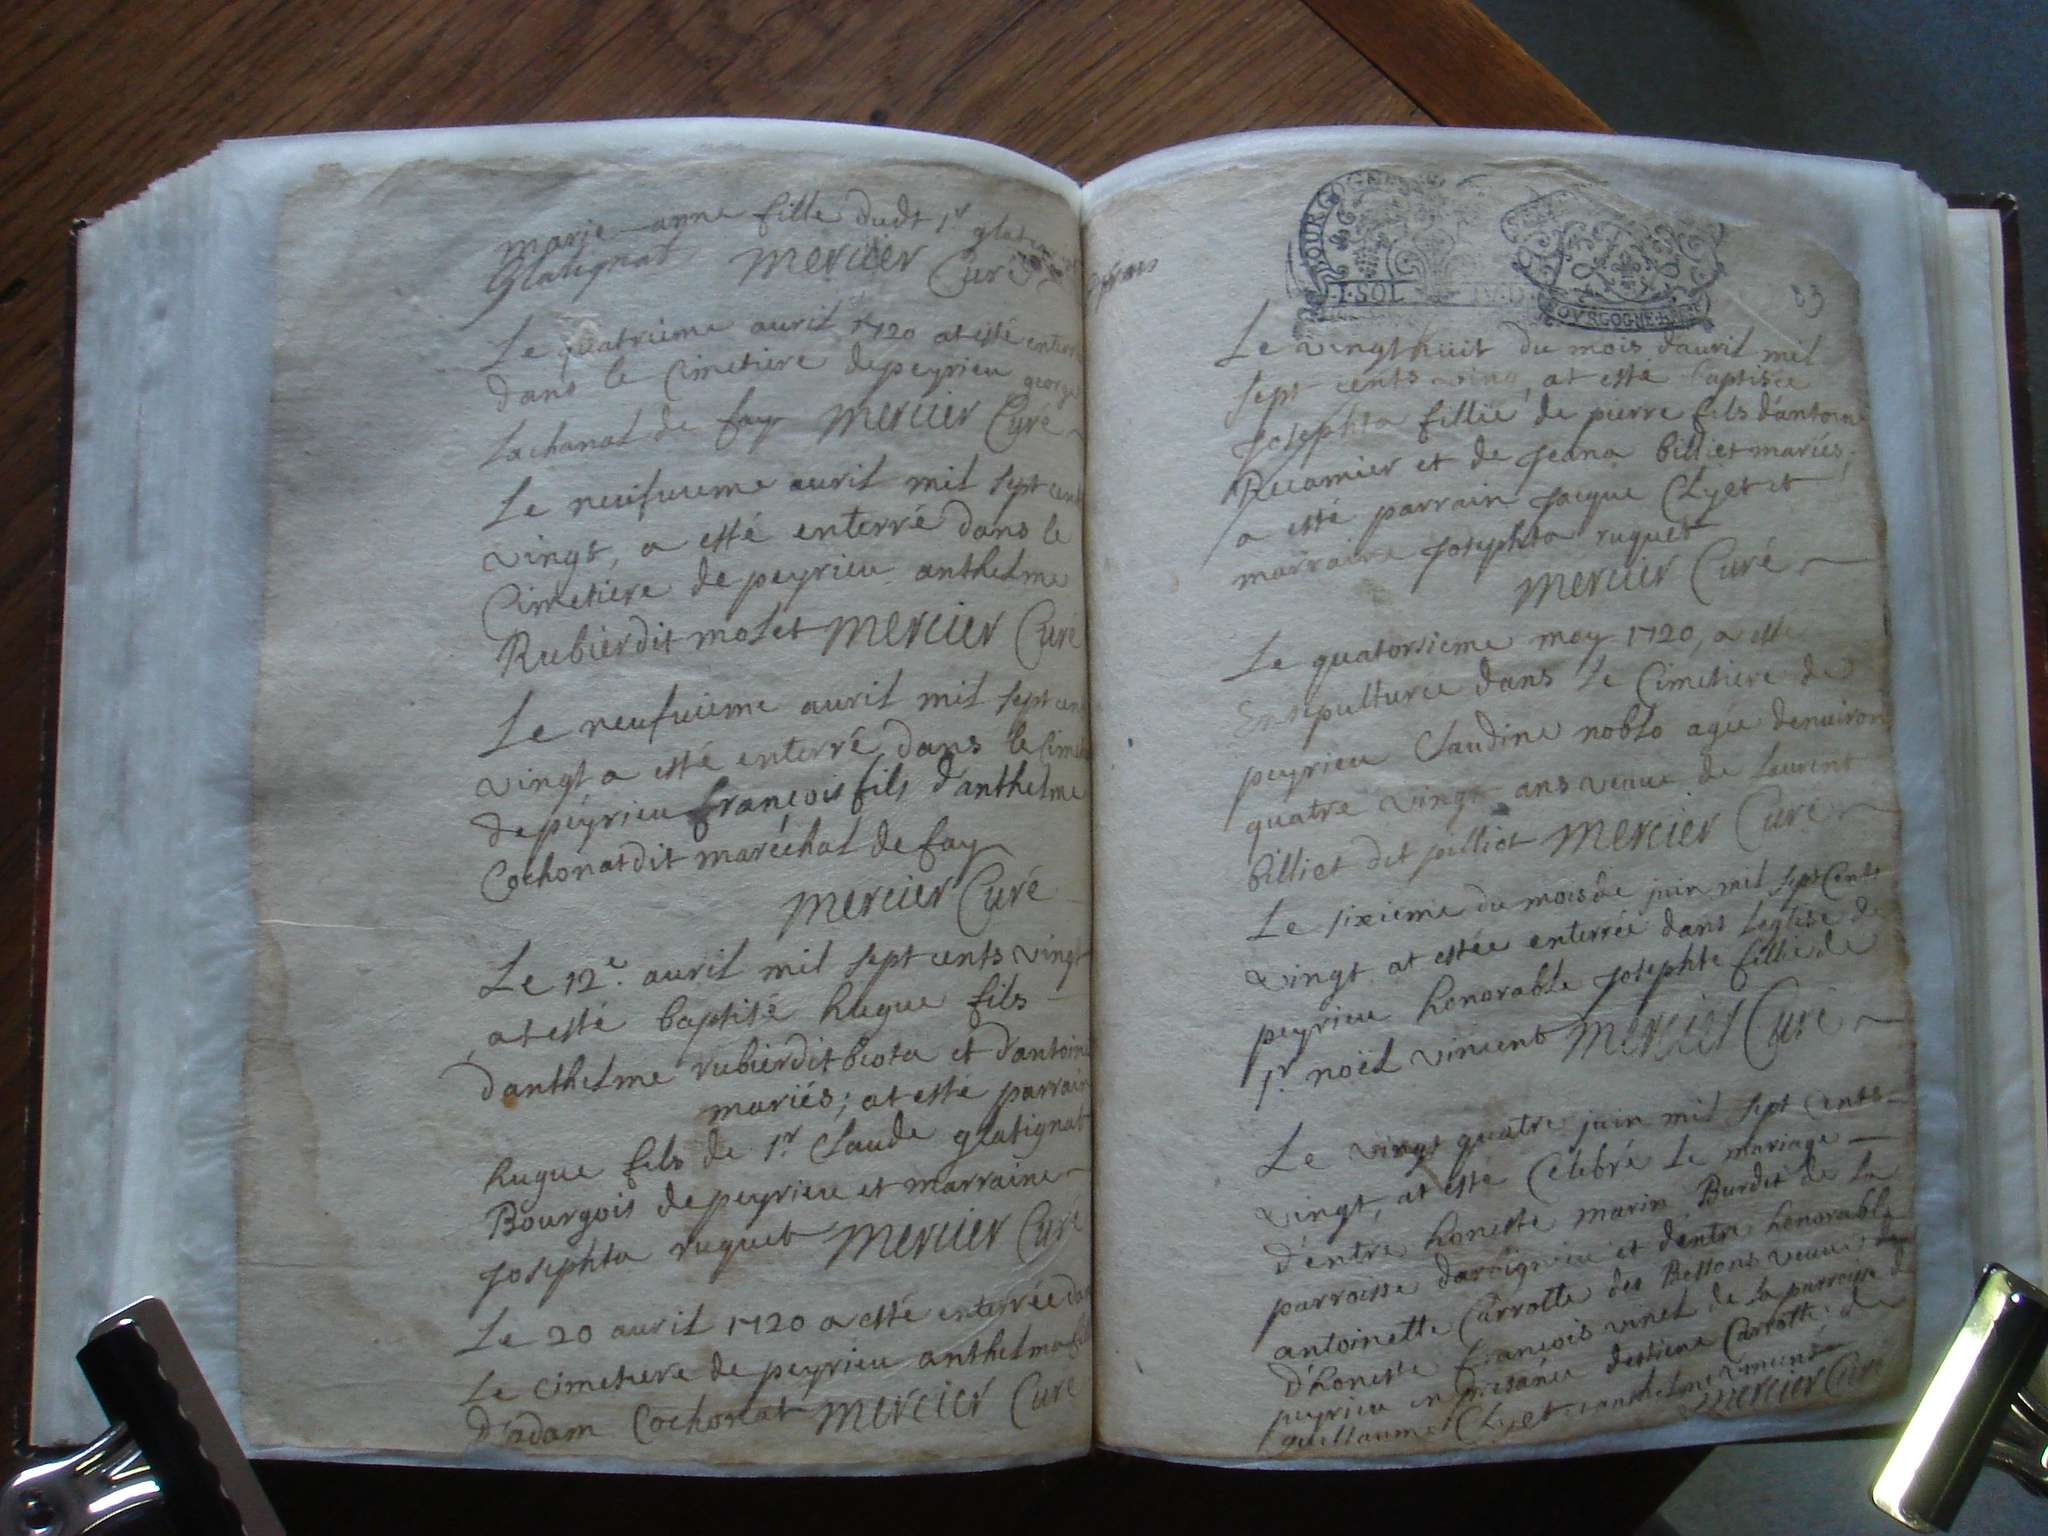 marje-anne fille dudt Sr
Glatignat mercier Curé
Le quatrieme auril 1720 at esté enterré
dans le Cimetiere de peyrieu george
Lachanal de fay mercier Curé
Le neufuieme auril mil sept cent
vingt, a esté enterré dans le
Cimetiere de peyrieu anthelme
Rubier dit molet mercier Curé
Le neufuieme auril mil sept cen
vingt a esté enterré dans le Cimet
de peyrieu françois fils d'anthelme
Cochonat dit maréchal de fay
mercier Curé
Le 12e. auril mil sept cents vingt
at esté baptisé hugue fils
d'anthelme rubier dit beota et d'antoin
mariés; at esté parrain
hugue fils de Sr. Claude glatignat
Bourgois de peyrieu et marraine
Josephta ruguet mercier Curé
Le 20 auril 1720 a esté enterrée da
Le cimetiere de peyrieu anthelma fi
D'adam Cochonat mercier Curé
BOURGOGNE
I·SOL
83
Le vingt huit du mois d'auril mil
sept cents ving, at esté baptisée
Josephta fillie de pierre fils d'antoine
Recamier et de Jeana billiet mariés;
a esté parrain Jacque Clyet et
marraine Josephta ruguet
mercier Curé
Le quatorsieme may 1720, a esté
Ensepulturée dans Le Cimetiere de
peyrieu Claudine nobla agée denuiron
quatre vingt ans veuue de Laurent
billiet dit pilliot mercier Curé
Le sixieme du mois de juin mil sept Cents
vingt at estée enterrée dans L'eglise de
peyrieu honorable Josephte fillie de
Sr. noël vincent mercier Curé
Le vingt quatre juin mil sept Cents
vingt, at esté Celebré Le mariage
d'entre honeste marin Burdet de La
parroisse d'arbignieu et d'entre honorable
antoinette Carrotte des Bessons veuue
d'honeste françois vinet de La parroisse de
peyrieu en presance d'estiene Carrotte, de
guillaume Clyet anthelme vincent
mercier Curé